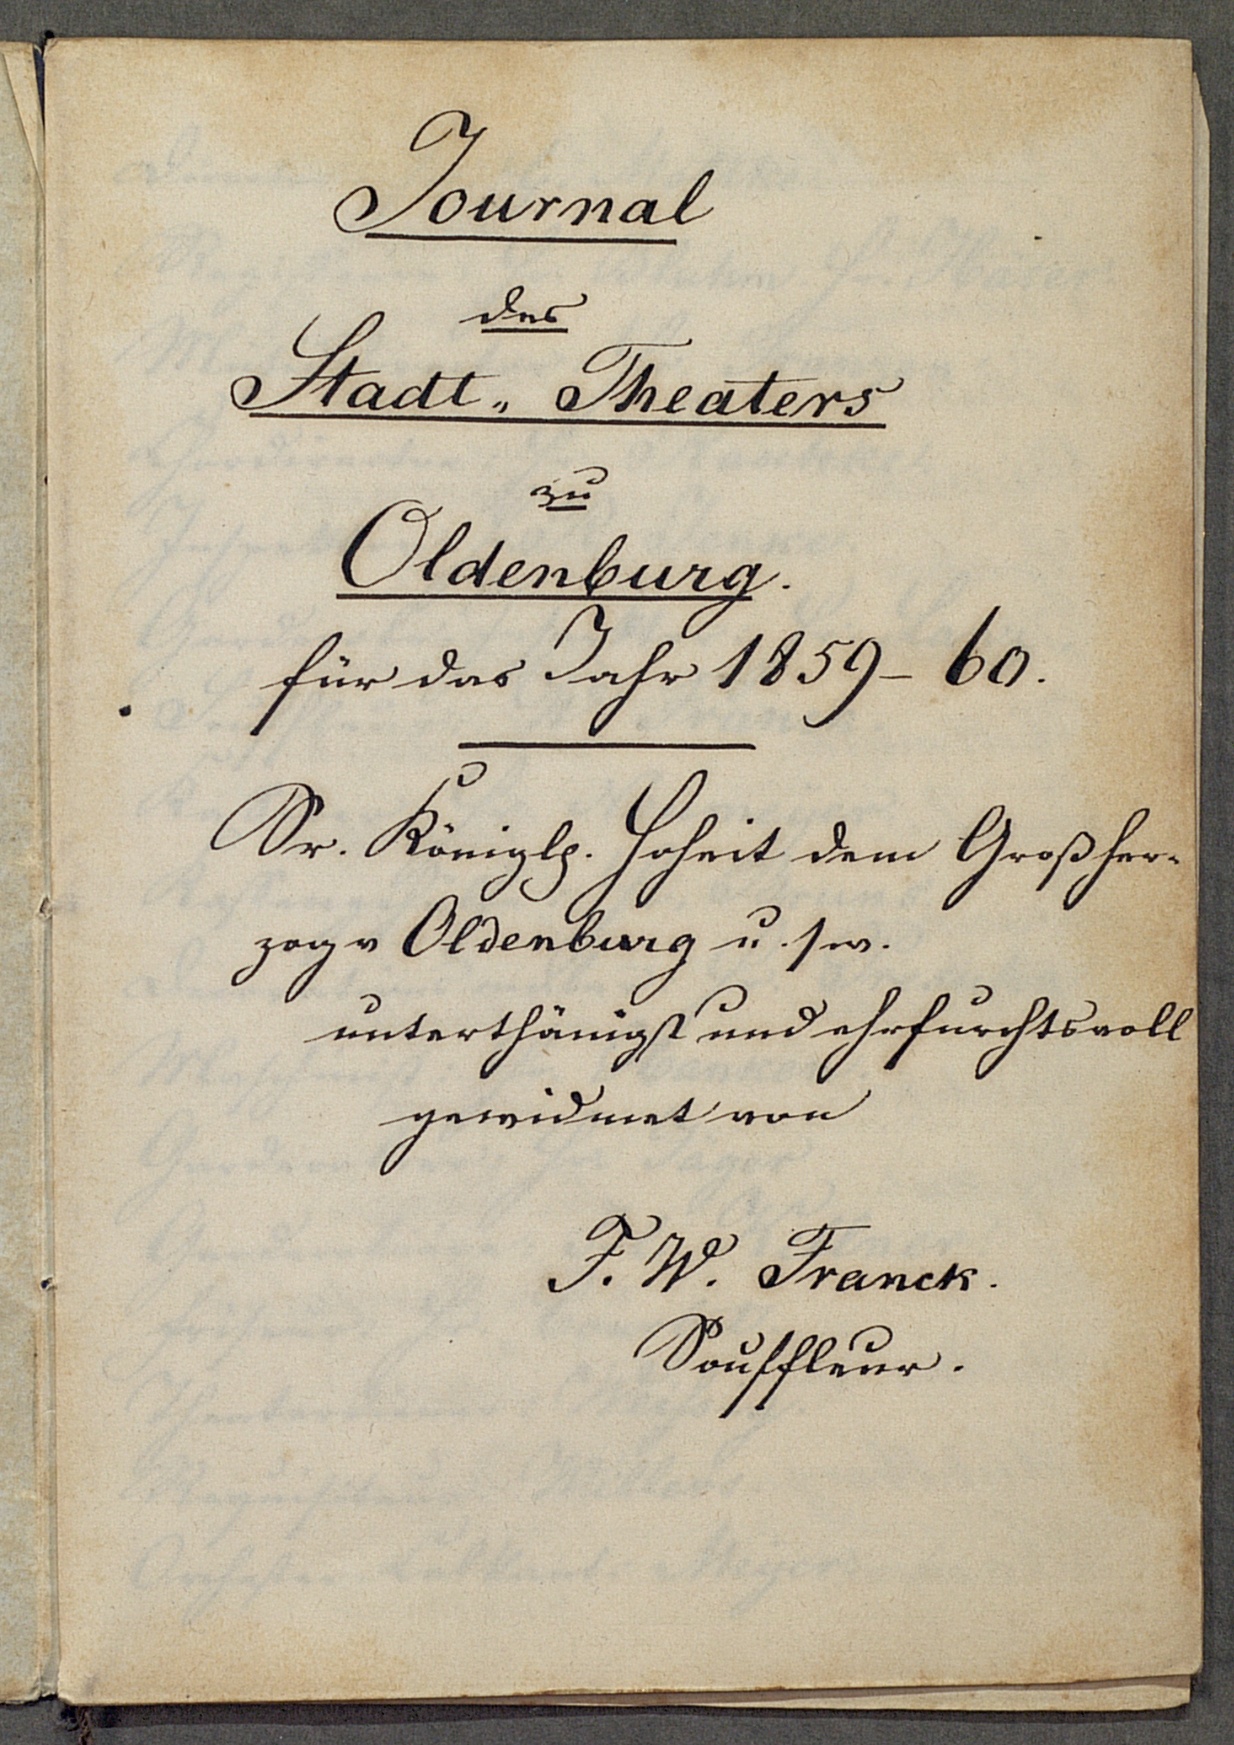 Journal
des
Stadt-Theaters
zu
Oldenburg.
für das Jahr 1859-60.
Sr. Königlh. Hoheit dem Großher-
zog v Oldenburg u. s w.
unterthänigst und ehrfurchtsvoll
gewidmet von
F. W. Franck.
Souffleur.